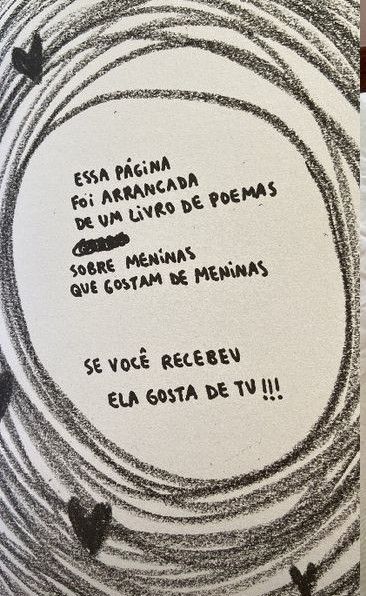 ESSA PÁGINA
FOI ARRANCADA
DE UM LIVRO DE POEMAS
SOBRE MENINAS
QUE GOSTAM DE MENINAS
SE VOCÊ RECEBEU
ELA GOSTA DE TU!!!